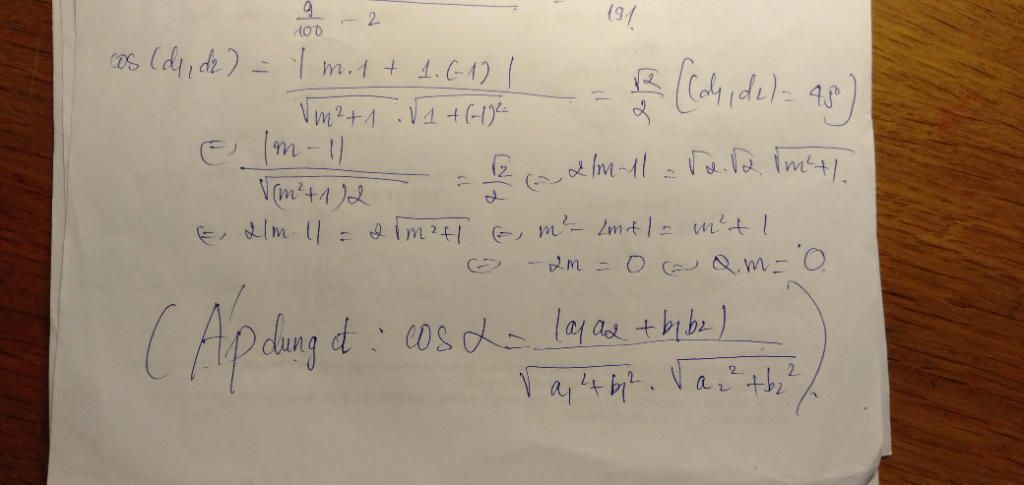 9/100 - 2 191
cos (d1, d2) = |m.1 + 1.(-1)| / √m²+1 . √1+(-1)² = √2/2 ((d1, d2) = 45°)
⇔ |m - 1| / √(m²+1)2 = √2/2 ⇔ 2|m-1| = √2.√2 √m²+1.
⇔ 2|m-1| = 2√m²+1 ⇔ m² - 2m+1 = m² + 1
⇔ -2m = 0 ⇔ m = 0
(Áp dụng ct : cos α = |a1a2 + b1b2| / √a1²+b1² . √a2²+b2²).